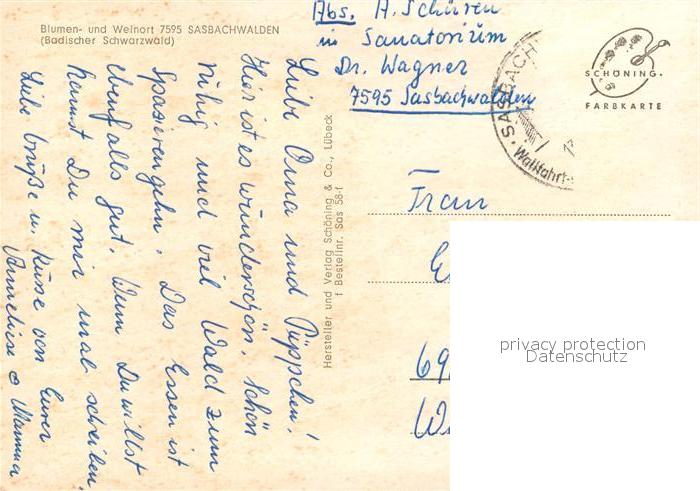 Blumen- und Weinort 7595 SASBACHWALDEN
(Badischer Schwarzwald)
Abs. A. Schüren
in Sanatorium
Dr. Wagner
7595 Sasbachwalden
SCHÖNING
FARBKARTE
SASBACH
Wallfahrt-
Liebe Oma und Püppchen!
Hier ist es wunderschön. Schön
ruhig und viel Wald zum
Spazierengehn. Das Essen ist
ebenfalls gut. Wenn Du willst
kannst Du mir mal schreiben.
Liebe Grüße u. Küsse von Eurer
Anneliese
Hersteller und Verlag Schöning & Co., Lübeck
Bestellnr. Sas 58
Frau
69
W
privacy protection
Datenschutz